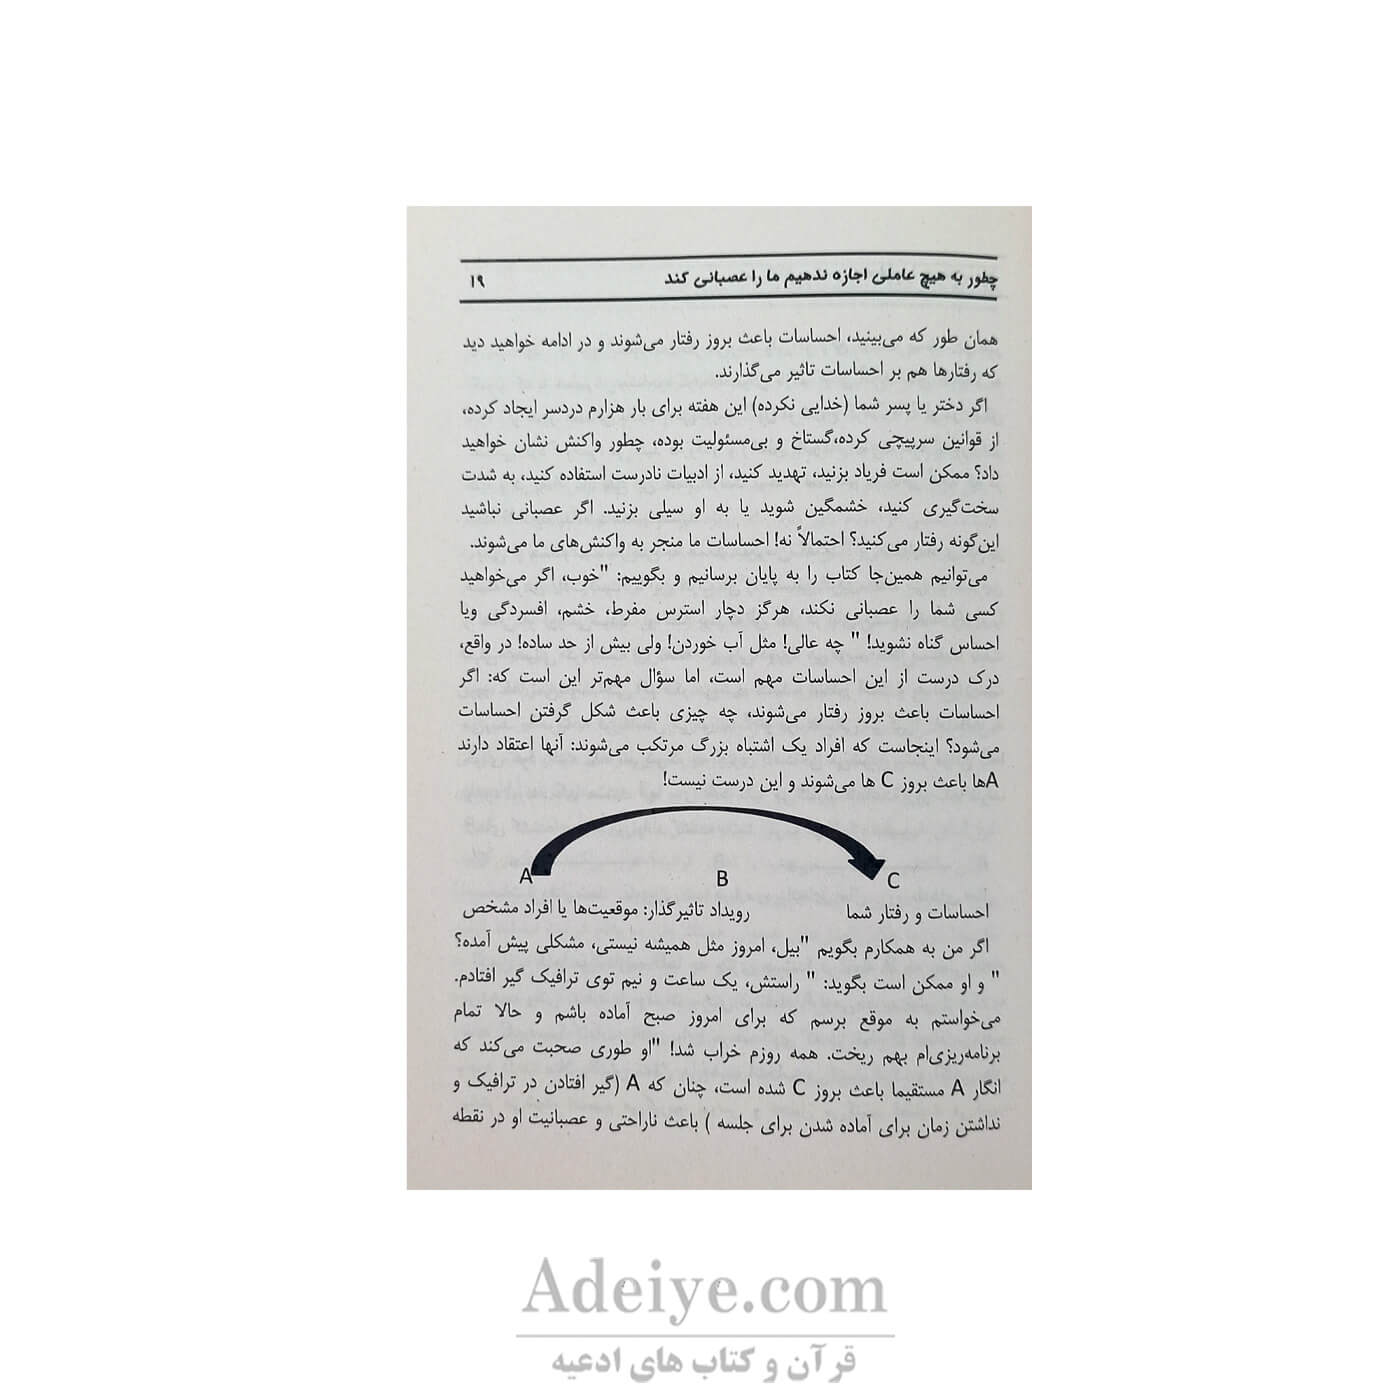 چطور به هیچ عاملی اجازه ندهیم ما را عصبانی کند ۱۹
همان طور که می‌بینید، احساسات باعث بروز رفتار می‌شوند و در ادامه خواهید دید
که رفتارها هم بر احساسات تاثیر می‌گذارند.
اگر دختر یا پسر شما (خدایی نکرده) این هفته برای بار هزارم دردسر ایجاد کرده،
از قوانین سرپیچی کرده،گستاخ و بی‌مسئولیت بوده، چطور واکنش نشان خواهید
داد؟ ممکن است فریاد بزنید، تهدید کنید، از ادبیات نادرست استفاده کنید، به شدت
سخت‌گیری کنید، خشمگین شوید یا به او سیلی بزنید. اگر عصبانی نباشید
این‌گونه رفتار می‌کنید؟ احتمالاً نه! احساسات ما منجر به واکنش‌های ما می‌شوند.
می‌توانیم همین‌جا کتاب را به پایان برسانیم و بگوییم: "خوب، اگر می‌خواهید
کسی شما را عصبانی نکند، هرگز دچار استرس مفرط، خشم، افسردگی ویا
احساس گناه نشوید! " چه عالی! مثل آب خوردن! ولی بیش از حد ساده! در واقع،
درک درست از این احساسات مهم است، اما سؤال مهم‌تر این است که: اگر
احساسات باعث بروز رفتار می‌شوند، چه چیزی باعث شکل گرفتن احساسات
می‌شود؟ اینجاست که افراد یک اشتباه بزرگ مرتکب می‌شوند: آنها اعتقاد دارند
Aها باعث بروز C ها می‌شوند و این درست نیست!
A B C
احساسات و رفتار شما رویداد تاثیرگذار: موقعیت‌ها یا افراد مشخص
اگر من به همکارم بگویم "بیل، امروز مثل همیشه نیستی، مشکلی پیش آمده؟
" و او ممکن است بگوید: " راستش، یک ساعت و نیم توی ترافیک گیر افتادم.
می‌خواستم به موقع برسم که برای امروز صبح آماده باشم و حالا تمام
برنامه‌ریزی‌ام بهم ریخت. همه روزم خراب شد! "او طوری صحبت می‌کند که
انگار A مستقیما باعث بروز C شده است، چنان که A (گیر افتادن در ترافیک و
نداشتن زمان برای آماده شدن برای جلسه ) باعث ناراحتی و عصبانیت او در نقطه
Adeiye.com
قرآن و کتاب های ادعیه